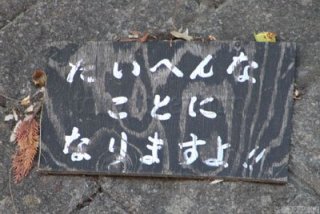 たいへんな
ことに
なりますよ!!